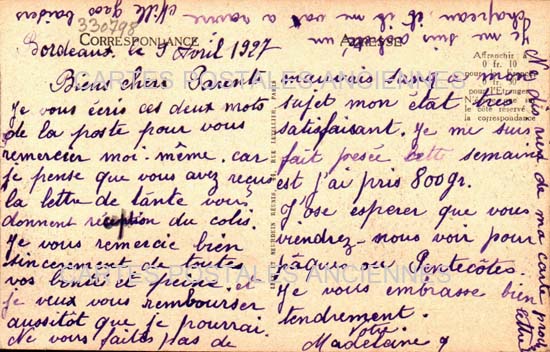 330798
CORRESPONDANCE
ADRESSE
Affranchir à
0 fr. 10
pour l'Etranger
le côté réservé
la correspondance
CARTES POSTALES ANCIENNES
CARTES POSTALES ANCIENNES
Bordeaux le 5 Avril 1927
Biens chers Parents
Je vous écris ces deux mots
de la poste pour vous
remercier moi-même. car
je pense que vous avez reçus
la lettre de tante vous
donnent réception du colis.
Je vous remercie bien
sincerement de toutes
vos bontés et peine. et
je veux vous rembourser
aussitôt que je pourrai.
Ne vous faites pas de
mauvais sang a mon
sujet mon état très
satisfaisant. Je me suis
fait pesée cette semaine
est j'ai pris 800gr.
J'ose esperer que vous
viendrez-nous voir pour
Pâque ou Pentecôtes.
Je vous embrasse bien
tendrement.
Votre
Madelaine
Ne dis rien de ma carte pour
lettre
Je me suis acheté un
chapeau, il me va a ravir
Mille gros baisers